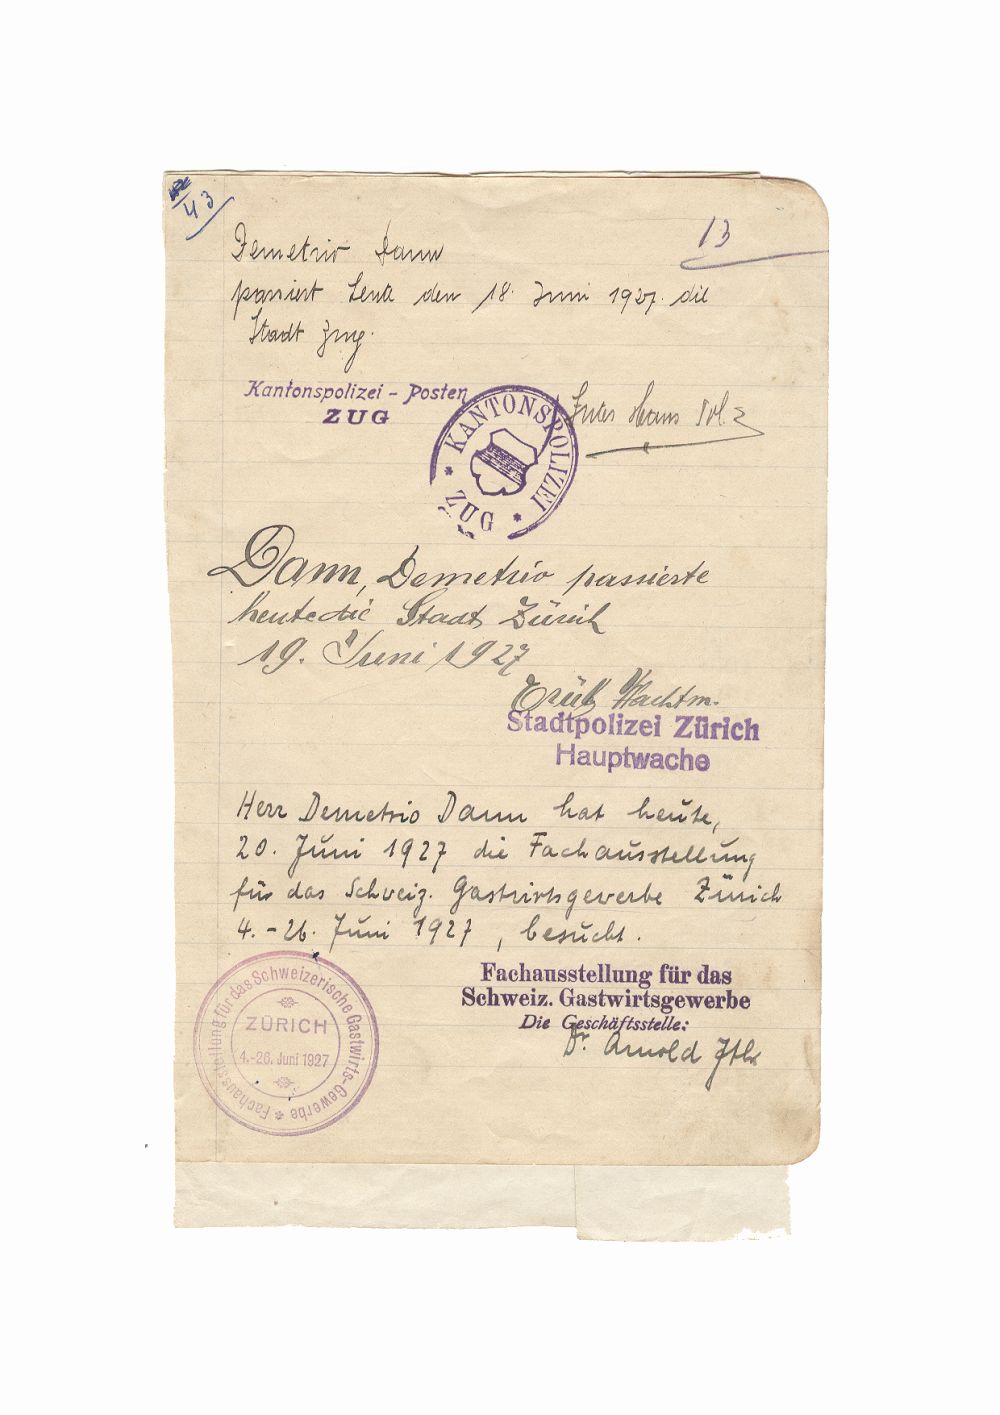 43
13
Demetrio Dann
passiert heute den 18. Juni 1927. die
Stadt Zug.
Kantonspolizei - Posten
ZUG
KANTONSPOLIZEI
ZUG
Hans Pol.
Dann, Demetrio passierte
heute die Stadt Zürich
19. Juni 1927
Wachtm.
Stadtpolizei Zürich
Hauptwache
Herr Demetrio Dann hat heute,
20. Juni 1927 die Fachausstellung
für das Schweiz. Gastwirtsgewerbe Zürich
4. - 26. Juni 1927, besucht.
Fachausstellung für das
Schweiz. Gastwirtsgewerbe
Die Geschäftsstelle:
Dr. Arnold
Fachausstellung für das Schweizerische Gastwirts-Gewerbe
ZÜRICH
4.-26. Juni 1927